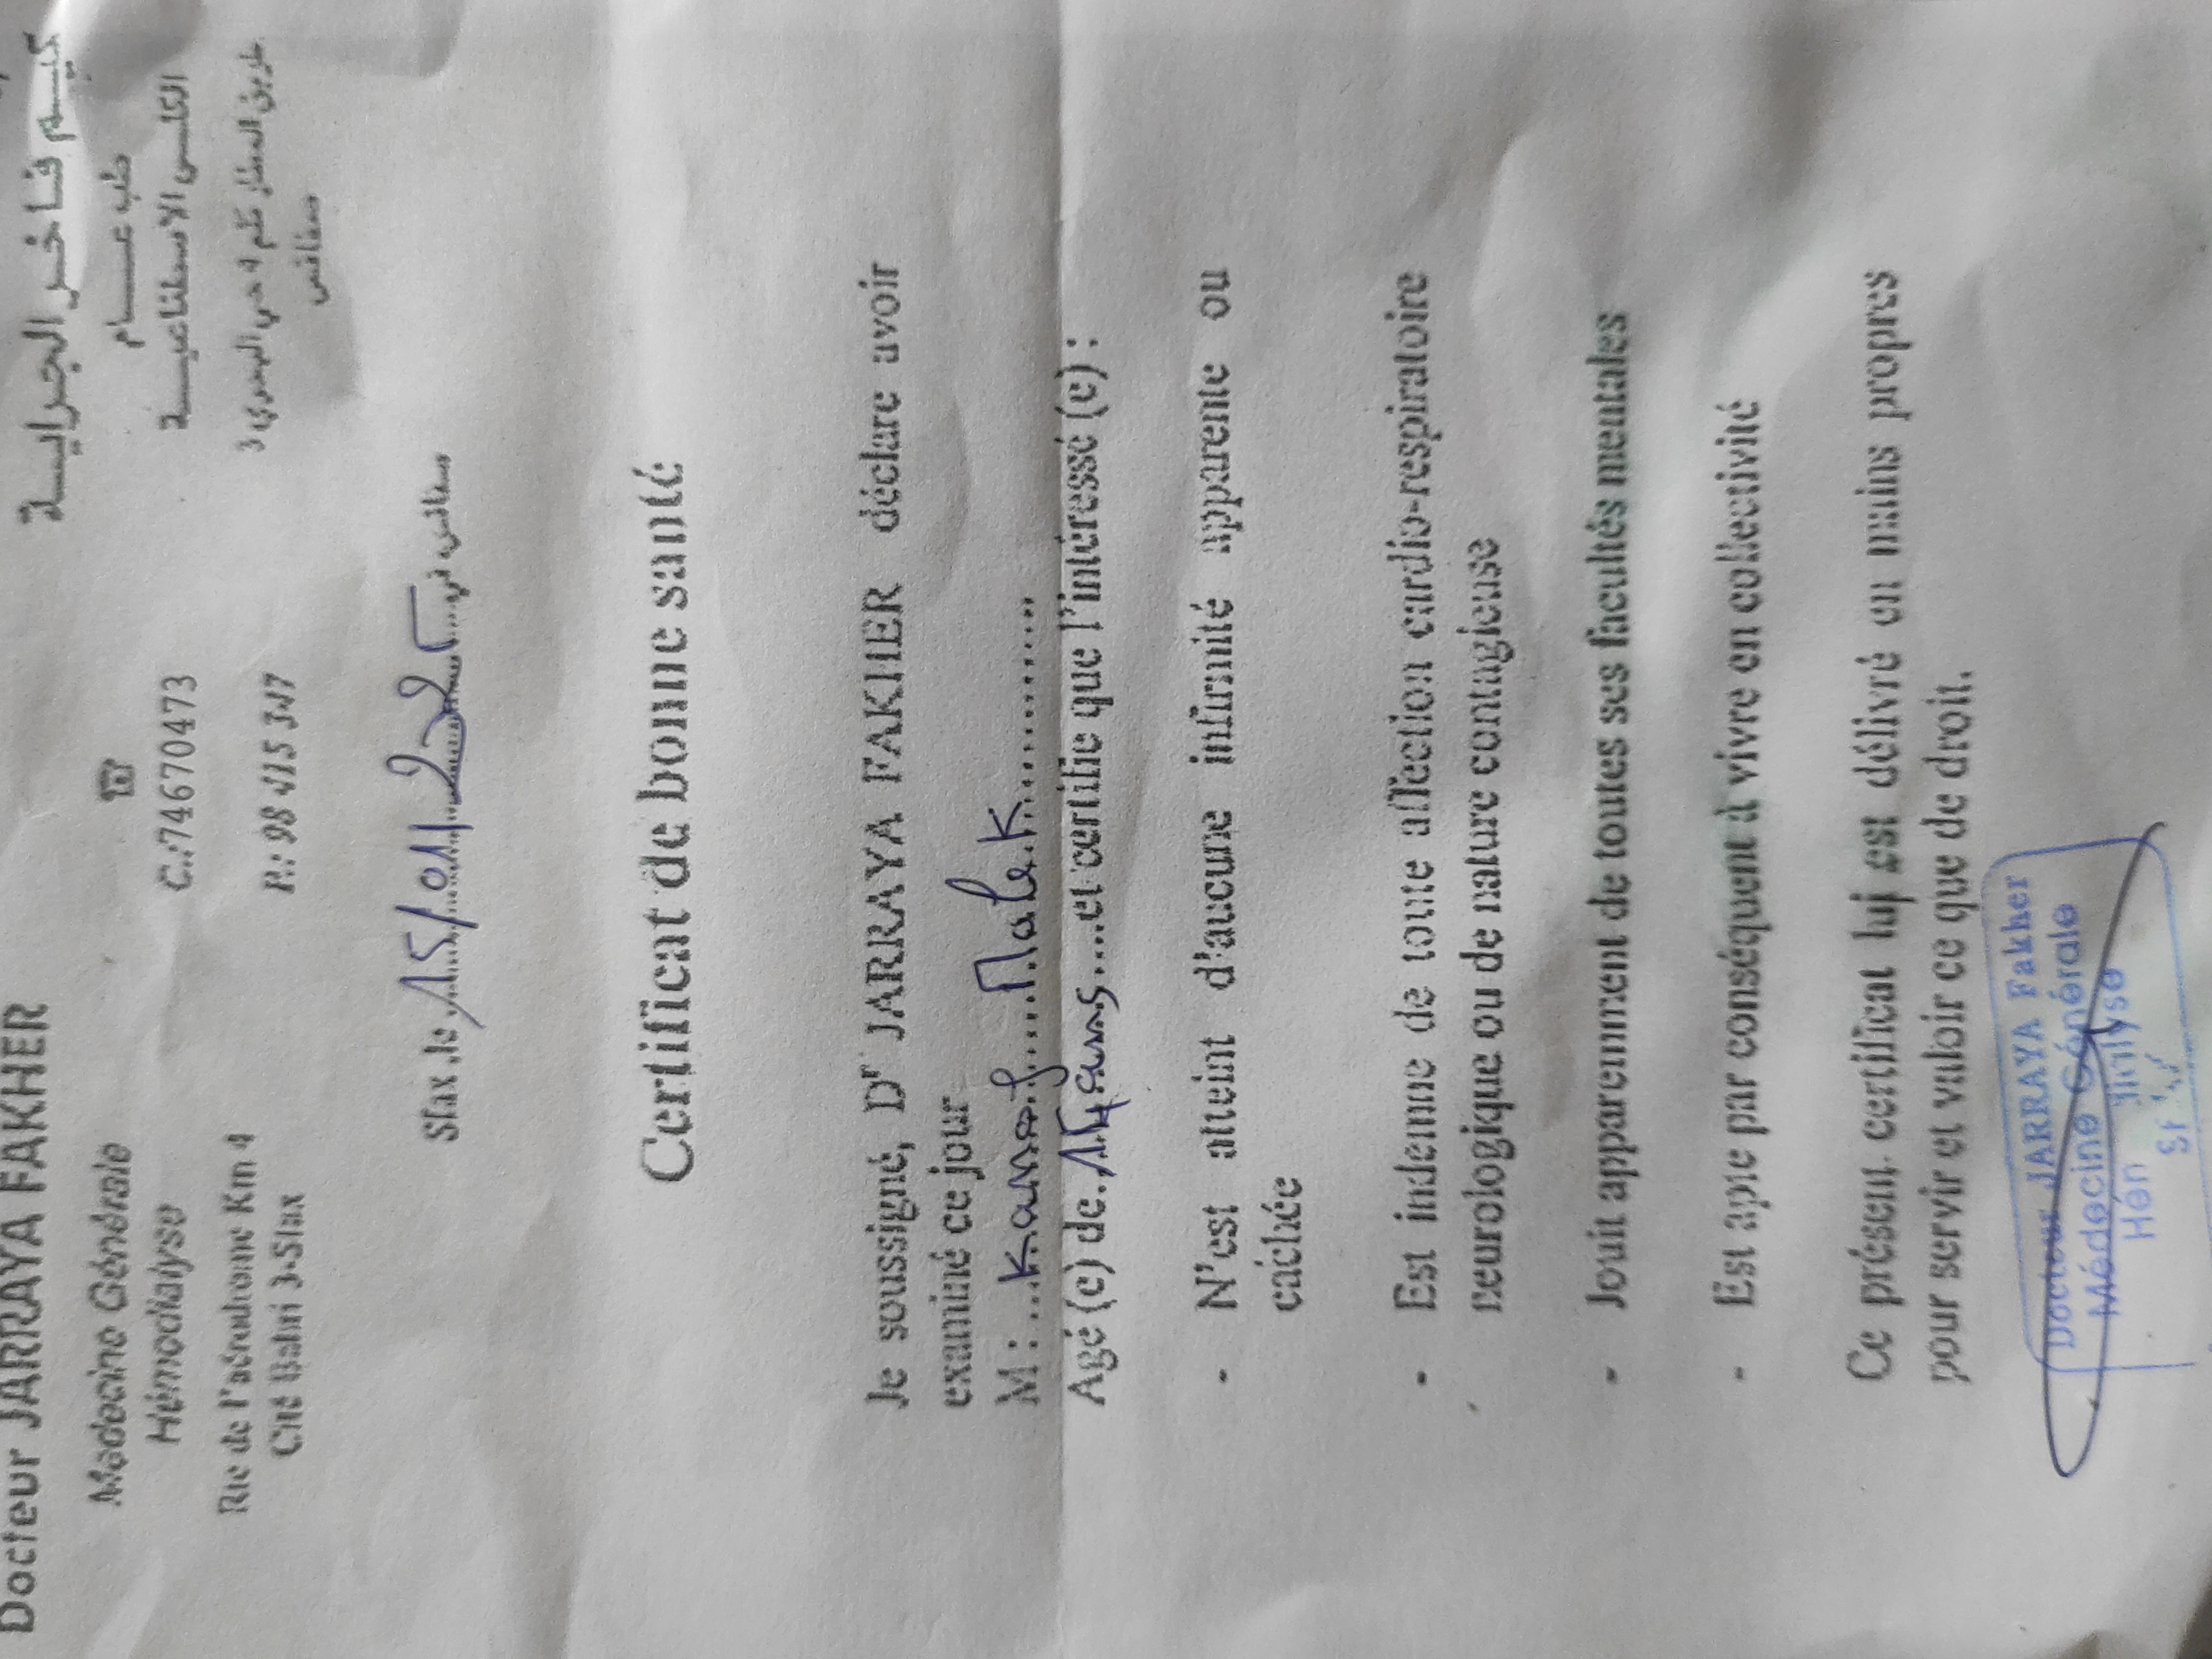 Docteur JARRAYA FAKHER
الحكيم فاخر الجراية
Médecine Générale
Hémodialyse
طب عام
الكلى الاصطناعية
☎
C.:74670473
P.: 98 415 347
Rte de l'aérodrome Km 4
Cité Bahri 3-Sfax
طريق المطار كلم 4 حي البحري 3
صفاقس
Sfax ,le 15/01/2025 صفاقس في
Certificat de bonne santé
Je soussigné, Dr JARRAYA FAKHER déclare avoir
examiné ce jour
M : Malek
Agé (e) de 14 ans et certifie que l'intéressé (e) :
- N'est atteint d'aucune infirmité apparente ou
cachée
- Est indemne de toute affection cardio-respiratoire
neurologique ou de nature contagieuse
- Jouit apparemment de toutes ses facultés mentales
- Est apte par conséquent à vivre en collectivité
Ce présent certificat lui est délivré en mains propres
pour servir et valoir ce que de droit.
Docteur JARRAYA Fakher
Médecine Générale